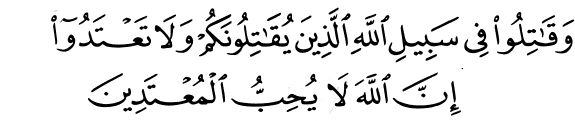 وَقَٰتِلُوا۟ فِى سَبِيلِ ٱللَّهِ ٱلَّذِينَ يُقَٰتِلُونَكُمْ وَلَا تَعْتَدُوٓا۟
إِنَّ ٱللَّهَ لَا يُحِبُّ ٱلْمُعْتَدِينَ